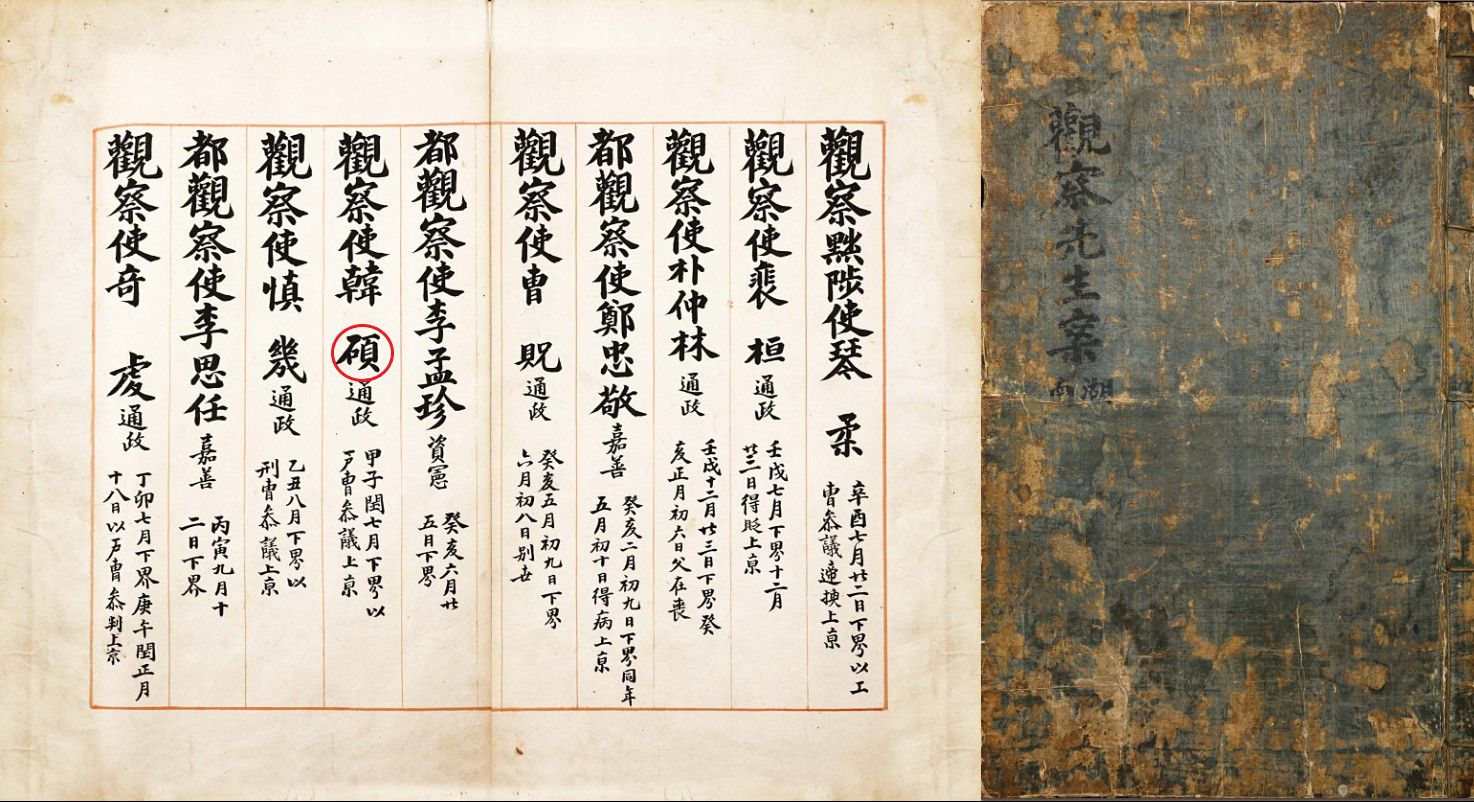 觀察黜陟使琴 柔
辛酉七月廿二日下界以工
曹叅議遞換上京
觀察使裴 桓 通政
壬戌七月下界十二月
廿二日得貶上京
觀察使朴仲林 通政
壬戌十二月廿三日下界癸
亥正月初六日父在喪
都觀察使鄭忠敬 嘉善
癸亥二月初九日下界同年
五月初十日得病上京
觀察使曹 貺 通政
癸亥五月初九日下界
六月初八日別世
都觀察使李孟珍 資憲
癸亥六月廿
五日下界
觀察使韓 碩 通政
甲子閏七月下界以
戶曹叅議上京
觀察使慎 幾 通政
乙丑八月下界以
刑曹叅議上京
都觀察使李思任 嘉善
丙寅九月十
二日下界
觀察使奇 虔 通政
丁卯七月下界庚午閏正月
十八日以戶曹叅判上京
觀察先生案
湖南